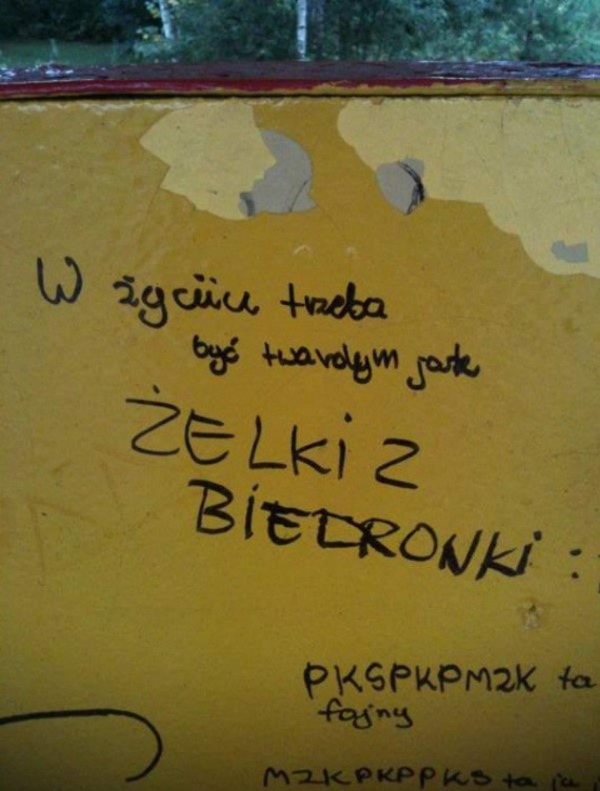 W życiu trzeba
być twardym jak
ŻELKI Z
BIEDRONKI :
PKSPKPMZK to
fajny
MZKPKPPKS to ja